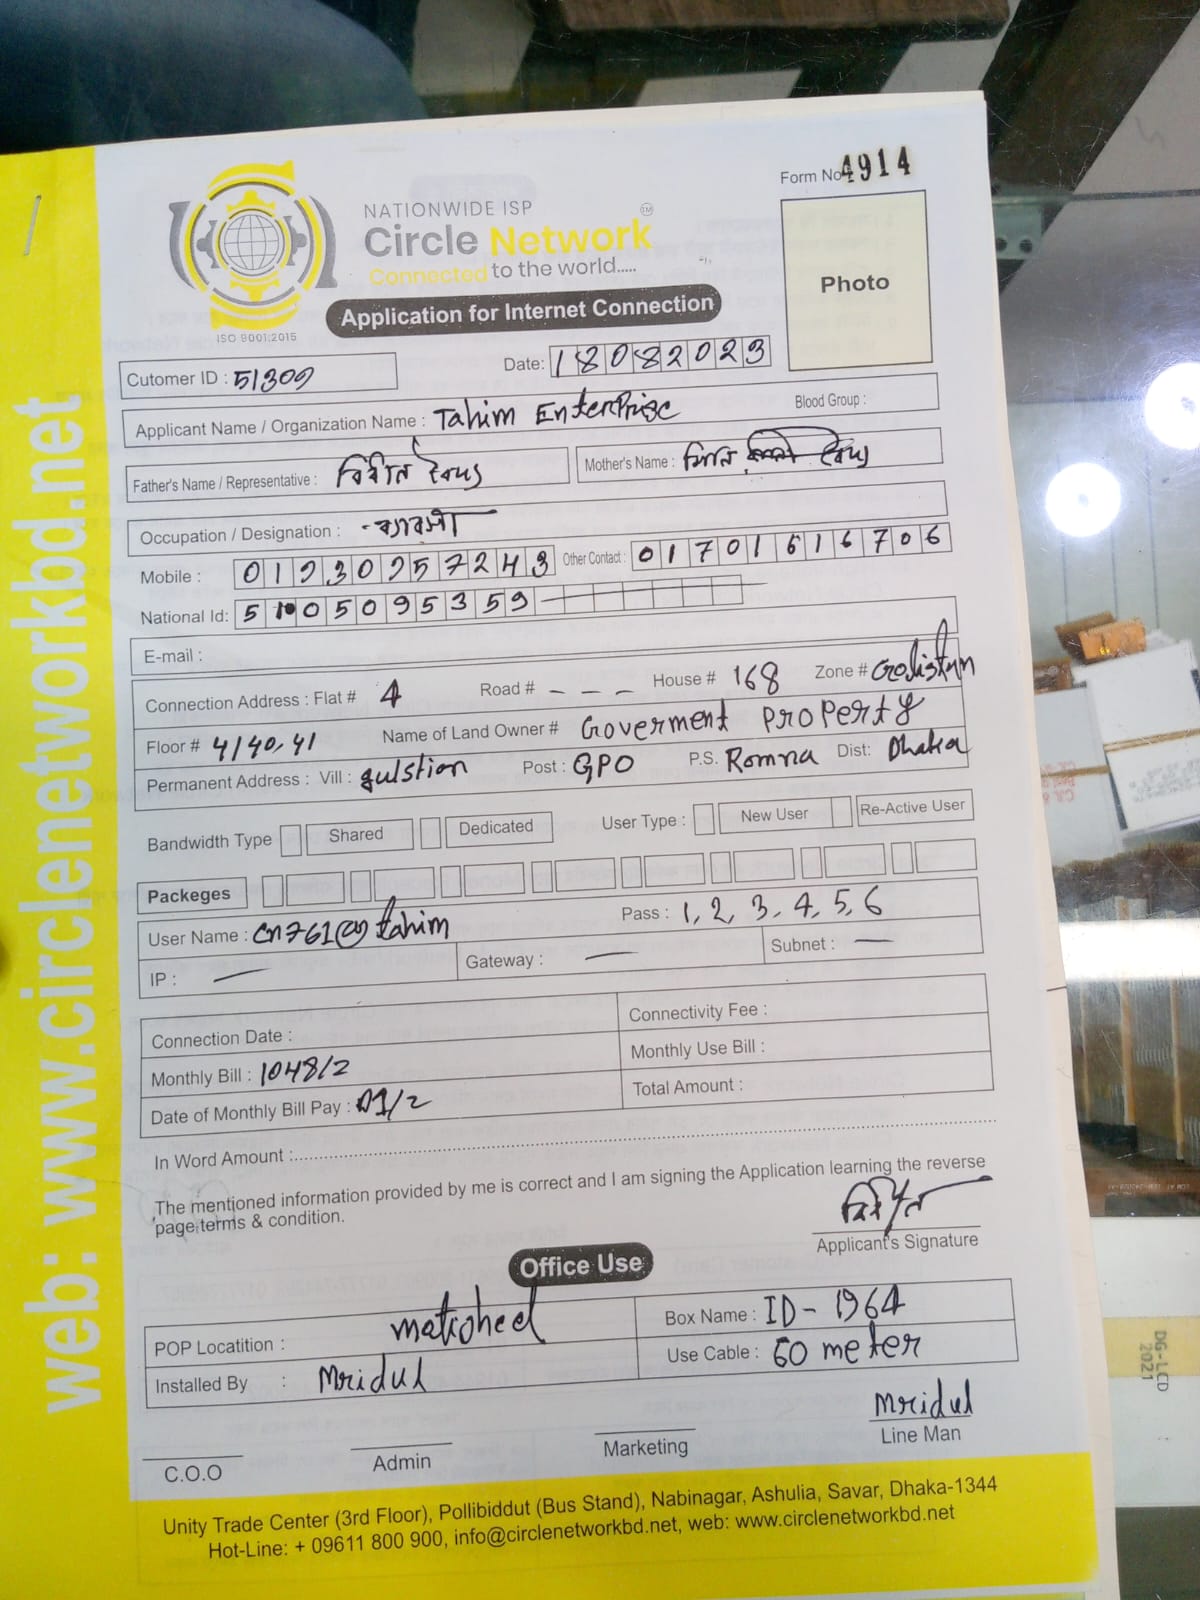 Form No 4914
NATIONWIDE ISP
Circle Network
Connected to the world.....
Application for Internet Connection
ISO 9001:2015
Photo
Cutomer ID : 51309
Date: 18082023
Applicant Name / Organization Name : Tahim EnterPrise
Blood Group :
Father's Name / Representative :
Mother's Name :
Occupation / Designation : ব্যাবসা
Mobile :
Other Contact : 01701616706
National Id: 51005095359
E-mail :
Connection Address : Flat # 4 Road # - - - House # 168 Zone #
Floor # 4/40,41 Name of Land Owner # Goverment ProPerty
Permanent Address : Vill : gulstion Post : GPO P.S. Romna Dist: Dhaka
Bandwidth Type Shared Dedicated User Type : New User Re-Active User
Packeges
User Name : cn761@tahim Pass : 1,2,3,4,5,6
IP : — Gateway : — Subnet : —
Connection Date :
Connectivity Fee :
Monthly Bill : 1048/2
Monthly Use Bill :
Date of Monthly Bill Pay : 01/2
Total Amount :
In Word Amount :
The mentioned information provided by me is correct and I am signing the Application learning the reverse
page terms & condition.
Applicant's Signature
Office Use
POP Locatition : motiheel
Box Name : ID - 1964
Installed By : Mridul
Use Cable : 60 meter
Mridul
C.O.O Admin Marketing Line Man
Unity Trade Center (3rd Floor), Pollibiddut (Bus Stand), Nabinagar, Ashulia, Savar, Dhaka-1344
Hot-Line: + 09611 800 900, info@circlenetworkbd.net, web: www.circlenetworkbd.net
web: www.circlenetworkbd.net
DG-LCD
2021